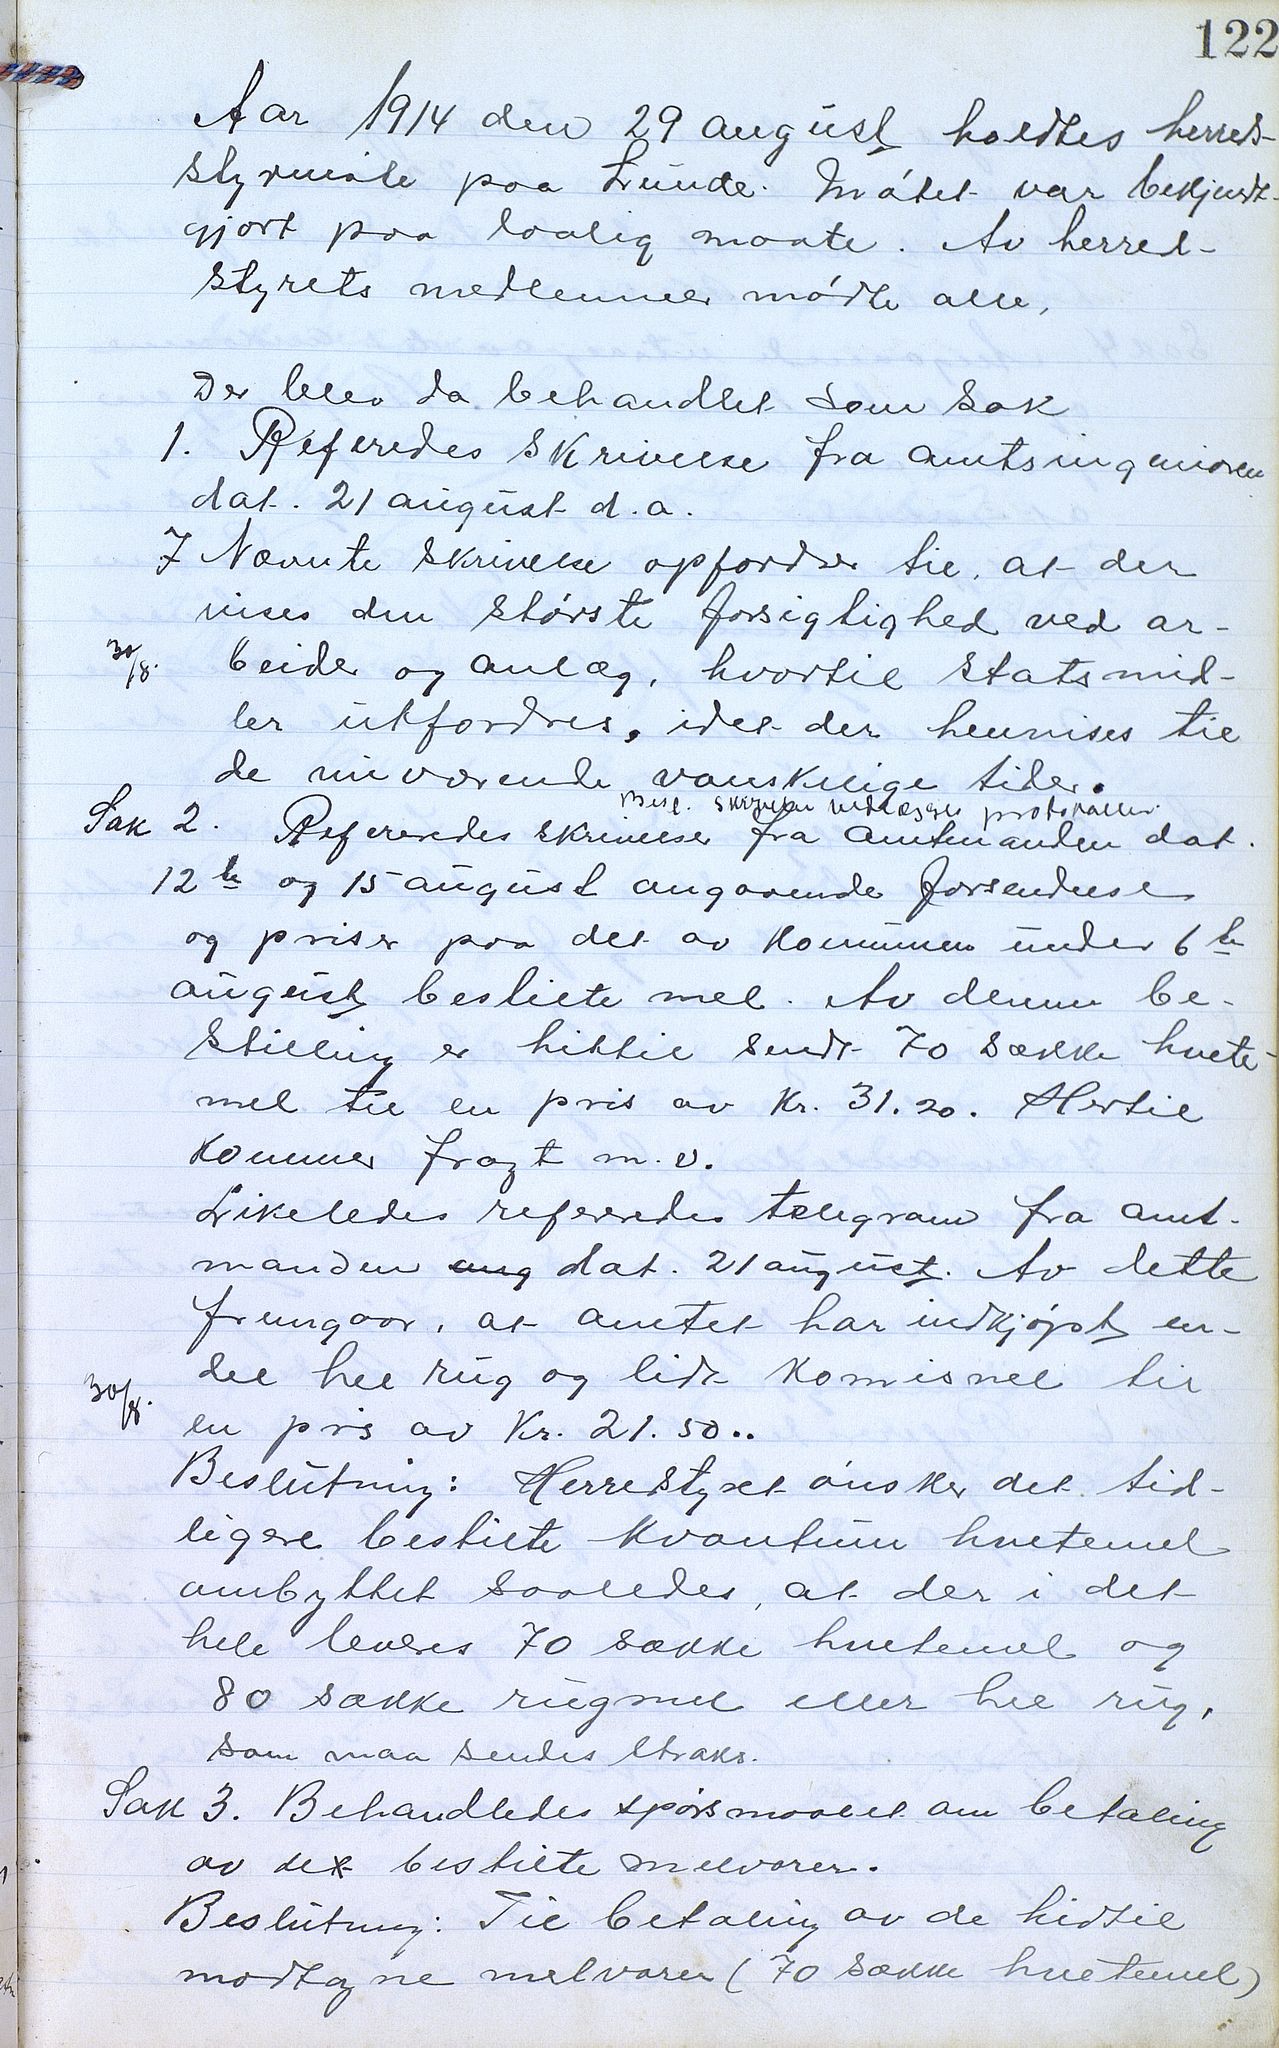 122
Aar 1914 den 29 august holdtes herreds-
styrmøte paa Lunde. Møtet var bekjendt-
gjort paa lovlig maate. Av herred-
styrets medlemmer mødte alle,
Der blev da behandlet som Sak
1. Referedes skrivelse fra amtsingeniøren
dat. 21 august d.a.
I Nævnte skrivelse opfordres til, at der
vises den største forsigtighed ved ar-
30/8. beider og anlæg, hvortil statsmid-
ler utfordres, idet der henvises til
de nuværende vanskelige tider.
Besl. Skrivelsen vedlægges protokollen.
Sak 2. Refereredes skrivelser fra amtmanden dat.
12te og 15 august angaaende forsendelse
og priser paa det av kommunen under 6te
august bestilte mel. Av denne be-
stilling er hittil sendt 70 sække hvete-
mel til en pris av Kr. 31.20. Hertil
kommer fragt m.v.
Likeledes refereredes telegram fra amt-
manden ang dat. 21 august. Av dette
fremgaar, at amtet har indkjøpt en-
del hel rug og lidt komismel til
30/8. en pris av Kr. 21.50..
Beslutning: Herredstyret ønsker det tid-
ligere bestilte kvantum hvetemel
ombyttet saaledes, at der i det
hele leveres 70 sække hvetemel og
80 sække rugmel eller hel rug,
som maa sendes straks.
Sak 3. Behandledes spørsmaalet om betaling
av det bestilte melvarer.
Beslutning: Til betaling av de hidtil
modtagne melvarer (70 sække hvetemel)